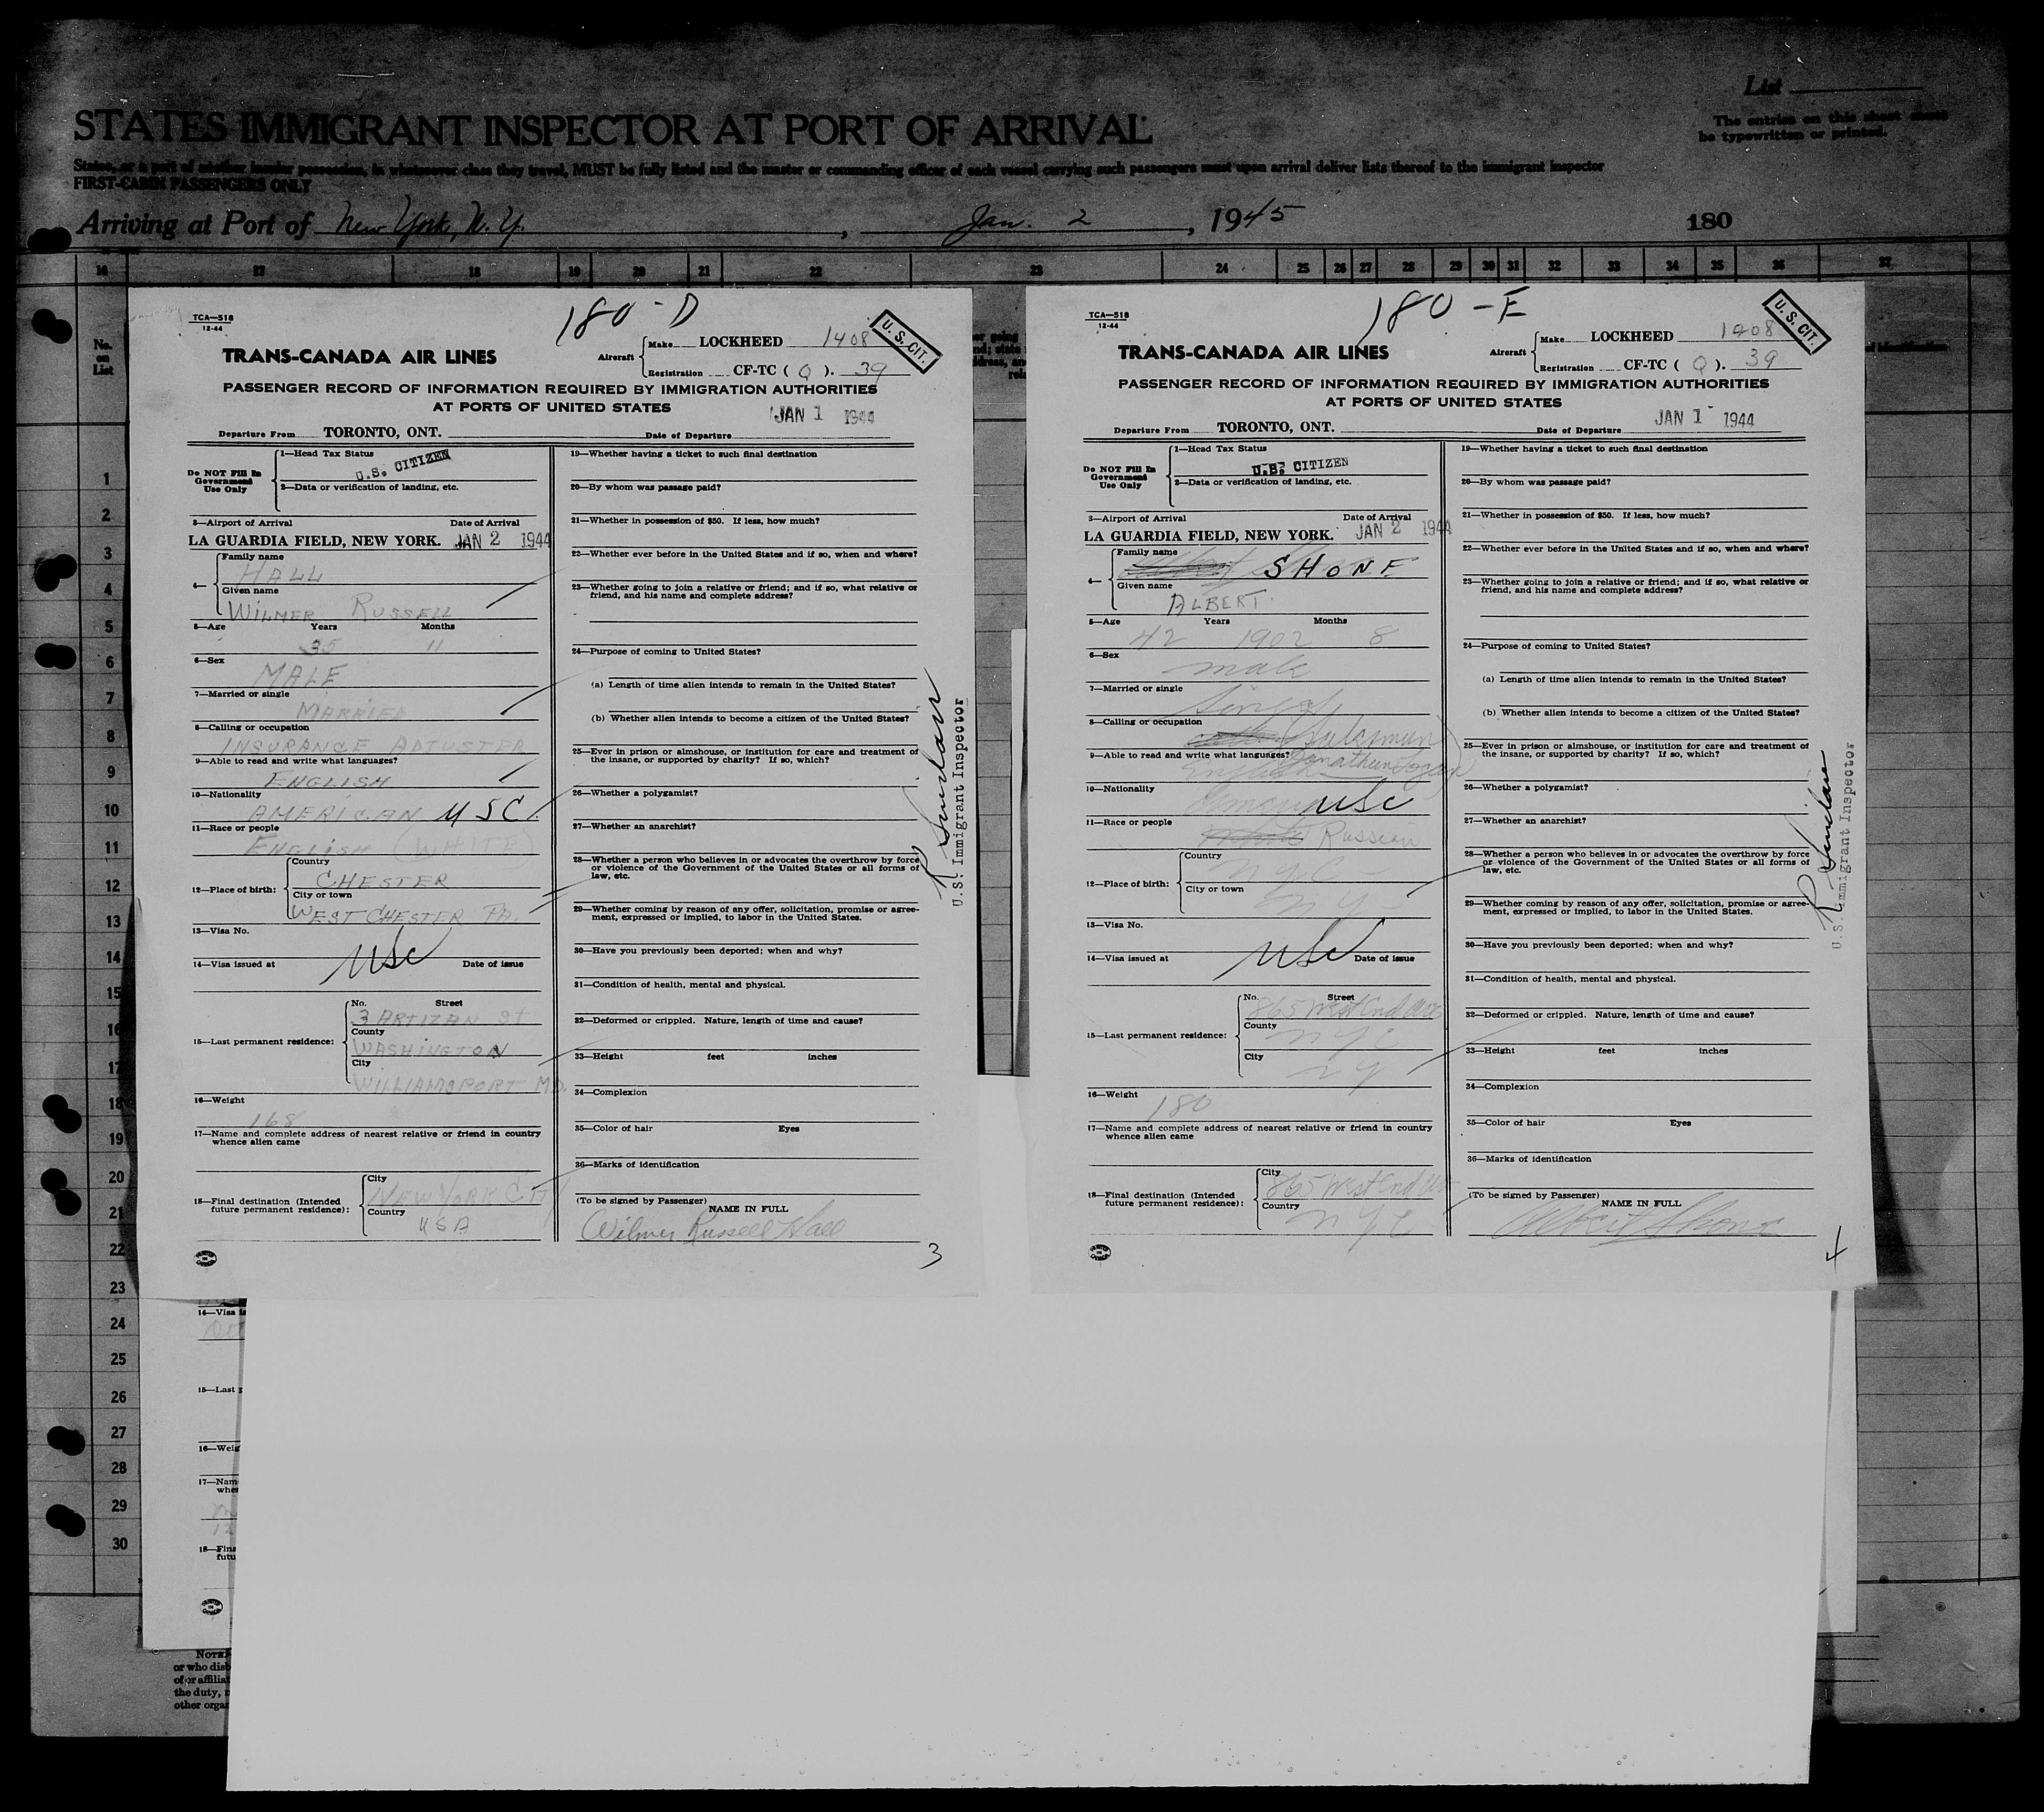 List
The entries on this sheet must
be typewritten or printed.
STATES IMMIGRANT INSPECTOR AT PORT OF ARRIVAL
States, or a part of another insular possession, in whatsoever class they travel, MUST be fully listed and the master or commanding officer of each vessel carrying such passengers must upon arrival deliver lists thereof to the immigrant inspector
FIRST-CABIN PASSENGERS ONLY
Arriving at Port of New York, N.Y. , Jan. 2 , 1945 180
16 17 18 19 20 21 22 23 24 25 26 27 28 29 30 31 32 33 34 35 36 37
No. on List
1
2
3
4
5
6
7
8
9
10
11
12
13
14
15
16
17
18
19
20
21
22
23
24
25
26
27
28
29
30
180-D
TCA—518
12-44
U. S. CIT.
TRANS-CANADA AIR LINES
Aircraft Make LOCKHEED 1408
Registration CF-TC ( Q ). 39
PASSENGER RECORD OF INFORMATION REQUIRED BY IMMIGRATION AUTHORITIES
AT PORTS OF UNITED STATES
JAN 1 1944
Departure From TORONTO, ONT. Date of Departure
Do NOT Fill In Government Use Only
1—Head Tax Status
U.S. CITIZEN
2—Data or verification of landing, etc.
3—Airport of Arrival Date of Arrival
LA GUARDIA FIELD, NEW YORK. JAN 2 1944
4— Family name
HALL
Given name
WILMER RUSSELL
5—Age Years Months
35 11
6—Sex
MALE
7—Married or single
MARRIED
8—Calling or occupation
INSURANCE ADJUSTER
9—Able to read and write what languages?
ENGLISH
10—Nationality
AMERICAN USC
11—Race or people
ENGLISH (WHITE)
12—Place of birth: Country
CHESTER
City or town
WEST CHESTER PA.
13—Visa No.
USC
14—Visa issued at Date of issue
15—Last permanent residence: No. Street
3 ARTIZAN St
County
WASHINGTON
City
WILLIAMSPORT MD.
16—Weight
168
17—Name and complete address of nearest relative or friend in country
whence alien came
18—Final destination (Intended
future permanent residence): City
NEW YORK CITY
Country
USA
19—Whether having a ticket to such final destination
20—By whom was passage paid?
21—Whether in possession of $50. If less, how much?
22—Whether ever before in the United States and if so, when and where?
23—Whether going to join a relative or friend; and if so, what relative or
friend, and his name and complete address?
24—Purpose of coming to United States?
(a) Length of time alien intends to remain in the United States?
(b) Whether alien intends to become a citizen of the United States?
25—Ever in prison or almshouse, or institution for care and treatment of
the insane, or supported by charity? If so, which?
26—Whether a polygamist?
27—Whether an anarchist?
28—Whether a person who believes in or advocates the overthrow by force
or violence of the Government of the United States or all forms of
law, etc.
29—Whether coming by reason of any offer, solicitation, promise or agree-
ment, expressed or implied, to labor in the United States.
30—Have you previously been deported; when and why?
31—Condition of health, mental and physical.
32—Deformed or crippled. Nature, length of time and cause?
33—Height feet inches
34—Complexion
35—Color of hair Eyes
36—Marks of identification
(To be signed by Passenger)
NAME IN FULL
Wilmer Russell Hall
3
U.S. Immigrant Inspector
180-E
TCA—518
12-44
U. S. CIT.
TRANS-CANADA AIR LINES
Aircraft Make LOCKHEED 1408
Registration CF-TC ( Q ). 39
PASSENGER RECORD OF INFORMATION REQUIRED BY IMMIGRATION AUTHORITIES
AT PORTS OF UNITED STATES
JAN 1 1944
Departure From TORONTO, ONT. Date of Departure
Do NOT Fill In Government Use Only
1—Head Tax Status
U.S. CITIZEN
2—Data or verification of landing, etc.
3—Airport of Arrival Date of Arrival
LA GUARDIA FIELD, NEW YORK. JAN 2 1944
4— Family name
SHONE
Given name
ALBERT
5—Age Years Months
42 1902 8
6—Sex
male
7—Married or single
Single
8—Calling or occupation
Salesman
9—Able to read and write what languages?
English Jonathan Logan
10—Nationality
USC
11—Race or people
Russian
12—Place of birth: Country
NYC
City or town
NY
13—Visa No.
USC
14—Visa issued at Date of issue
15—Last permanent residence: No. Street
865 West End Ave
County
NYC
City
NY
16—Weight
180
17—Name and complete address of nearest relative or friend in country
whence alien came
18—Final destination (Intended
future permanent residence): City
865 West End Ave
Country
NYC
19—Whether having a ticket to such final destination
20—By whom was passage paid?
21—Whether in possession of $50. If less, how much?
22—Whether ever before in the United States and if so, when and where?
23—Whether going to join a relative or friend; and if so, what relative or
friend, and his name and complete address?
24—Purpose of coming to United States?
(a) Length of time alien intends to remain in the United States?
(b) Whether alien intends to become a citizen of the United States?
25—Ever in prison or almshouse, or institution for care and treatment of
the insane, or supported by charity? If so, which?
26—Whether a polygamist?
27—Whether an anarchist?
28—Whether a person who believes in or advocates the overthrow by force
or violence of the Government of the United States or all forms of
law, etc.
29—Whether coming by reason of any offer, solicitation, promise or agree-
ment, expressed or implied, to labor in the United States.
30—Have you previously been deported; when and why?
31—Condition of health, mental and physical.
32—Deformed or crippled. Nature, length of time and cause?
33—Height feet inches
34—Complexion
35—Color of hair Eyes
36—Marks of identification
(To be signed by Passenger)
NAME IN FULL
Albert Shone
4
U.S. Immigrant Inspector
14—Visa is
15—Last p
16—Weig
17—Nam
whe
18—Fina
futu
NOTE
or who disb
of or affiliat
the duty,
other orga